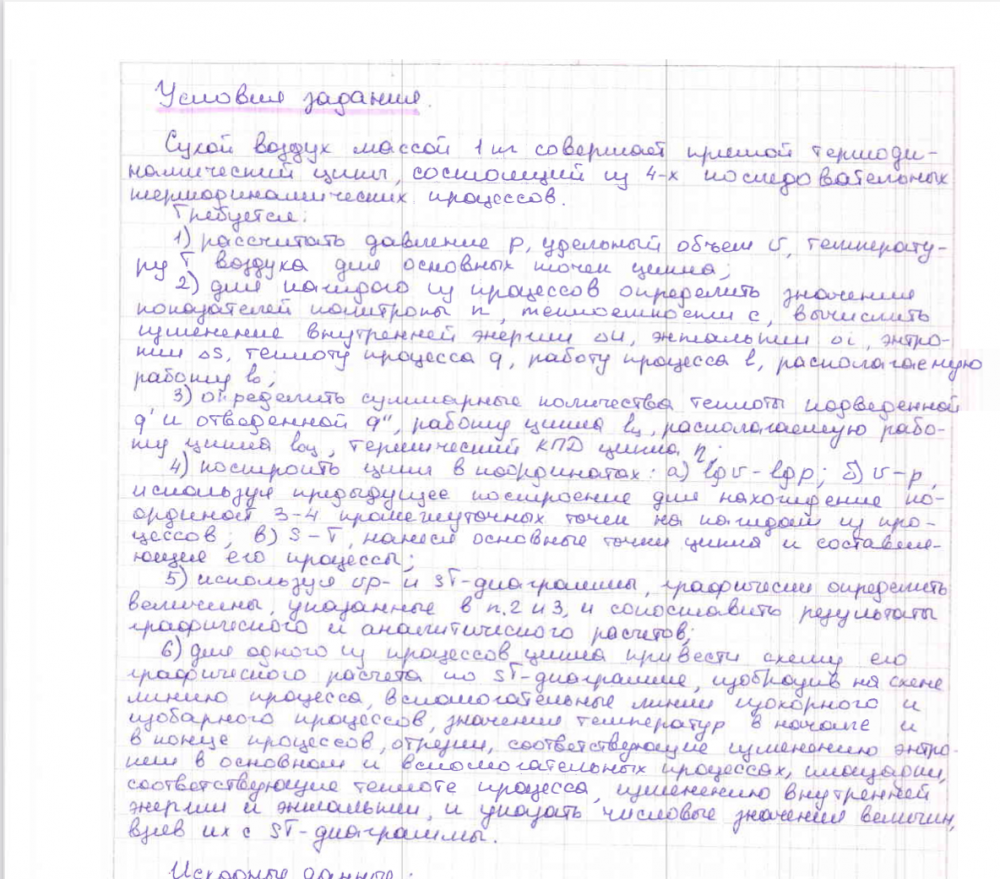 Условия задания.
Сухой воздух массой 1 кг совершает прямой термоди-
намический цикл, состоящий из 4-х последовательных
термодинамических процессов.
Требуется:
1) рассчитать давление p, удельный объем υ, температу-
ру T воздуха для основных точек цикла;
2) для каждого из процессов определить значения
показателей политропы n, теплоемкости c, вычислить
изменение внутренней энергии Δu, энтальпии Δi, энтро-
пии Δs, теплоту процесса q, работу процесса l, располагаемую
работу l₀;
3) определить суммарные количества теплоты подведенной
q' и отведенной q", работу цикла lц, располагаемую рабо-
ту цикла l₀ц, термический КПД цикла η;
4) построить цикл в координатах: а) lgυ - lgp; б) υ-p,
используя предыдущее построение для нахождение ко-
ординат 3-4 промежуточных точек на каждом из про-
цессов; в) S-T, нанеся основные точки цикла и составля-
ющие его процессы;
5) используя υp- и sT-диаграммы, графически определить
величины, указанные в п.2 и 3, и сопоставить результаты
графического и аналитического расчетов;
6) для одного из процессов цикла привести схему его
графического расчета по sT-диаграмме, изобразив на схеме
линию процесса, вспомогательные линии изохорного и
изобарного процессов, значения температур в начале и
в конце процессов, отрезки, соответствующие изменению энтро-
пии в основном и вспомогательных процессах, площадки,
соответствующие теплоте процесса, изменению внутренней
энергии и энтальпии, и указать числовые значения величин,
взяв их с sT-диаграммы.
Исходные данные: